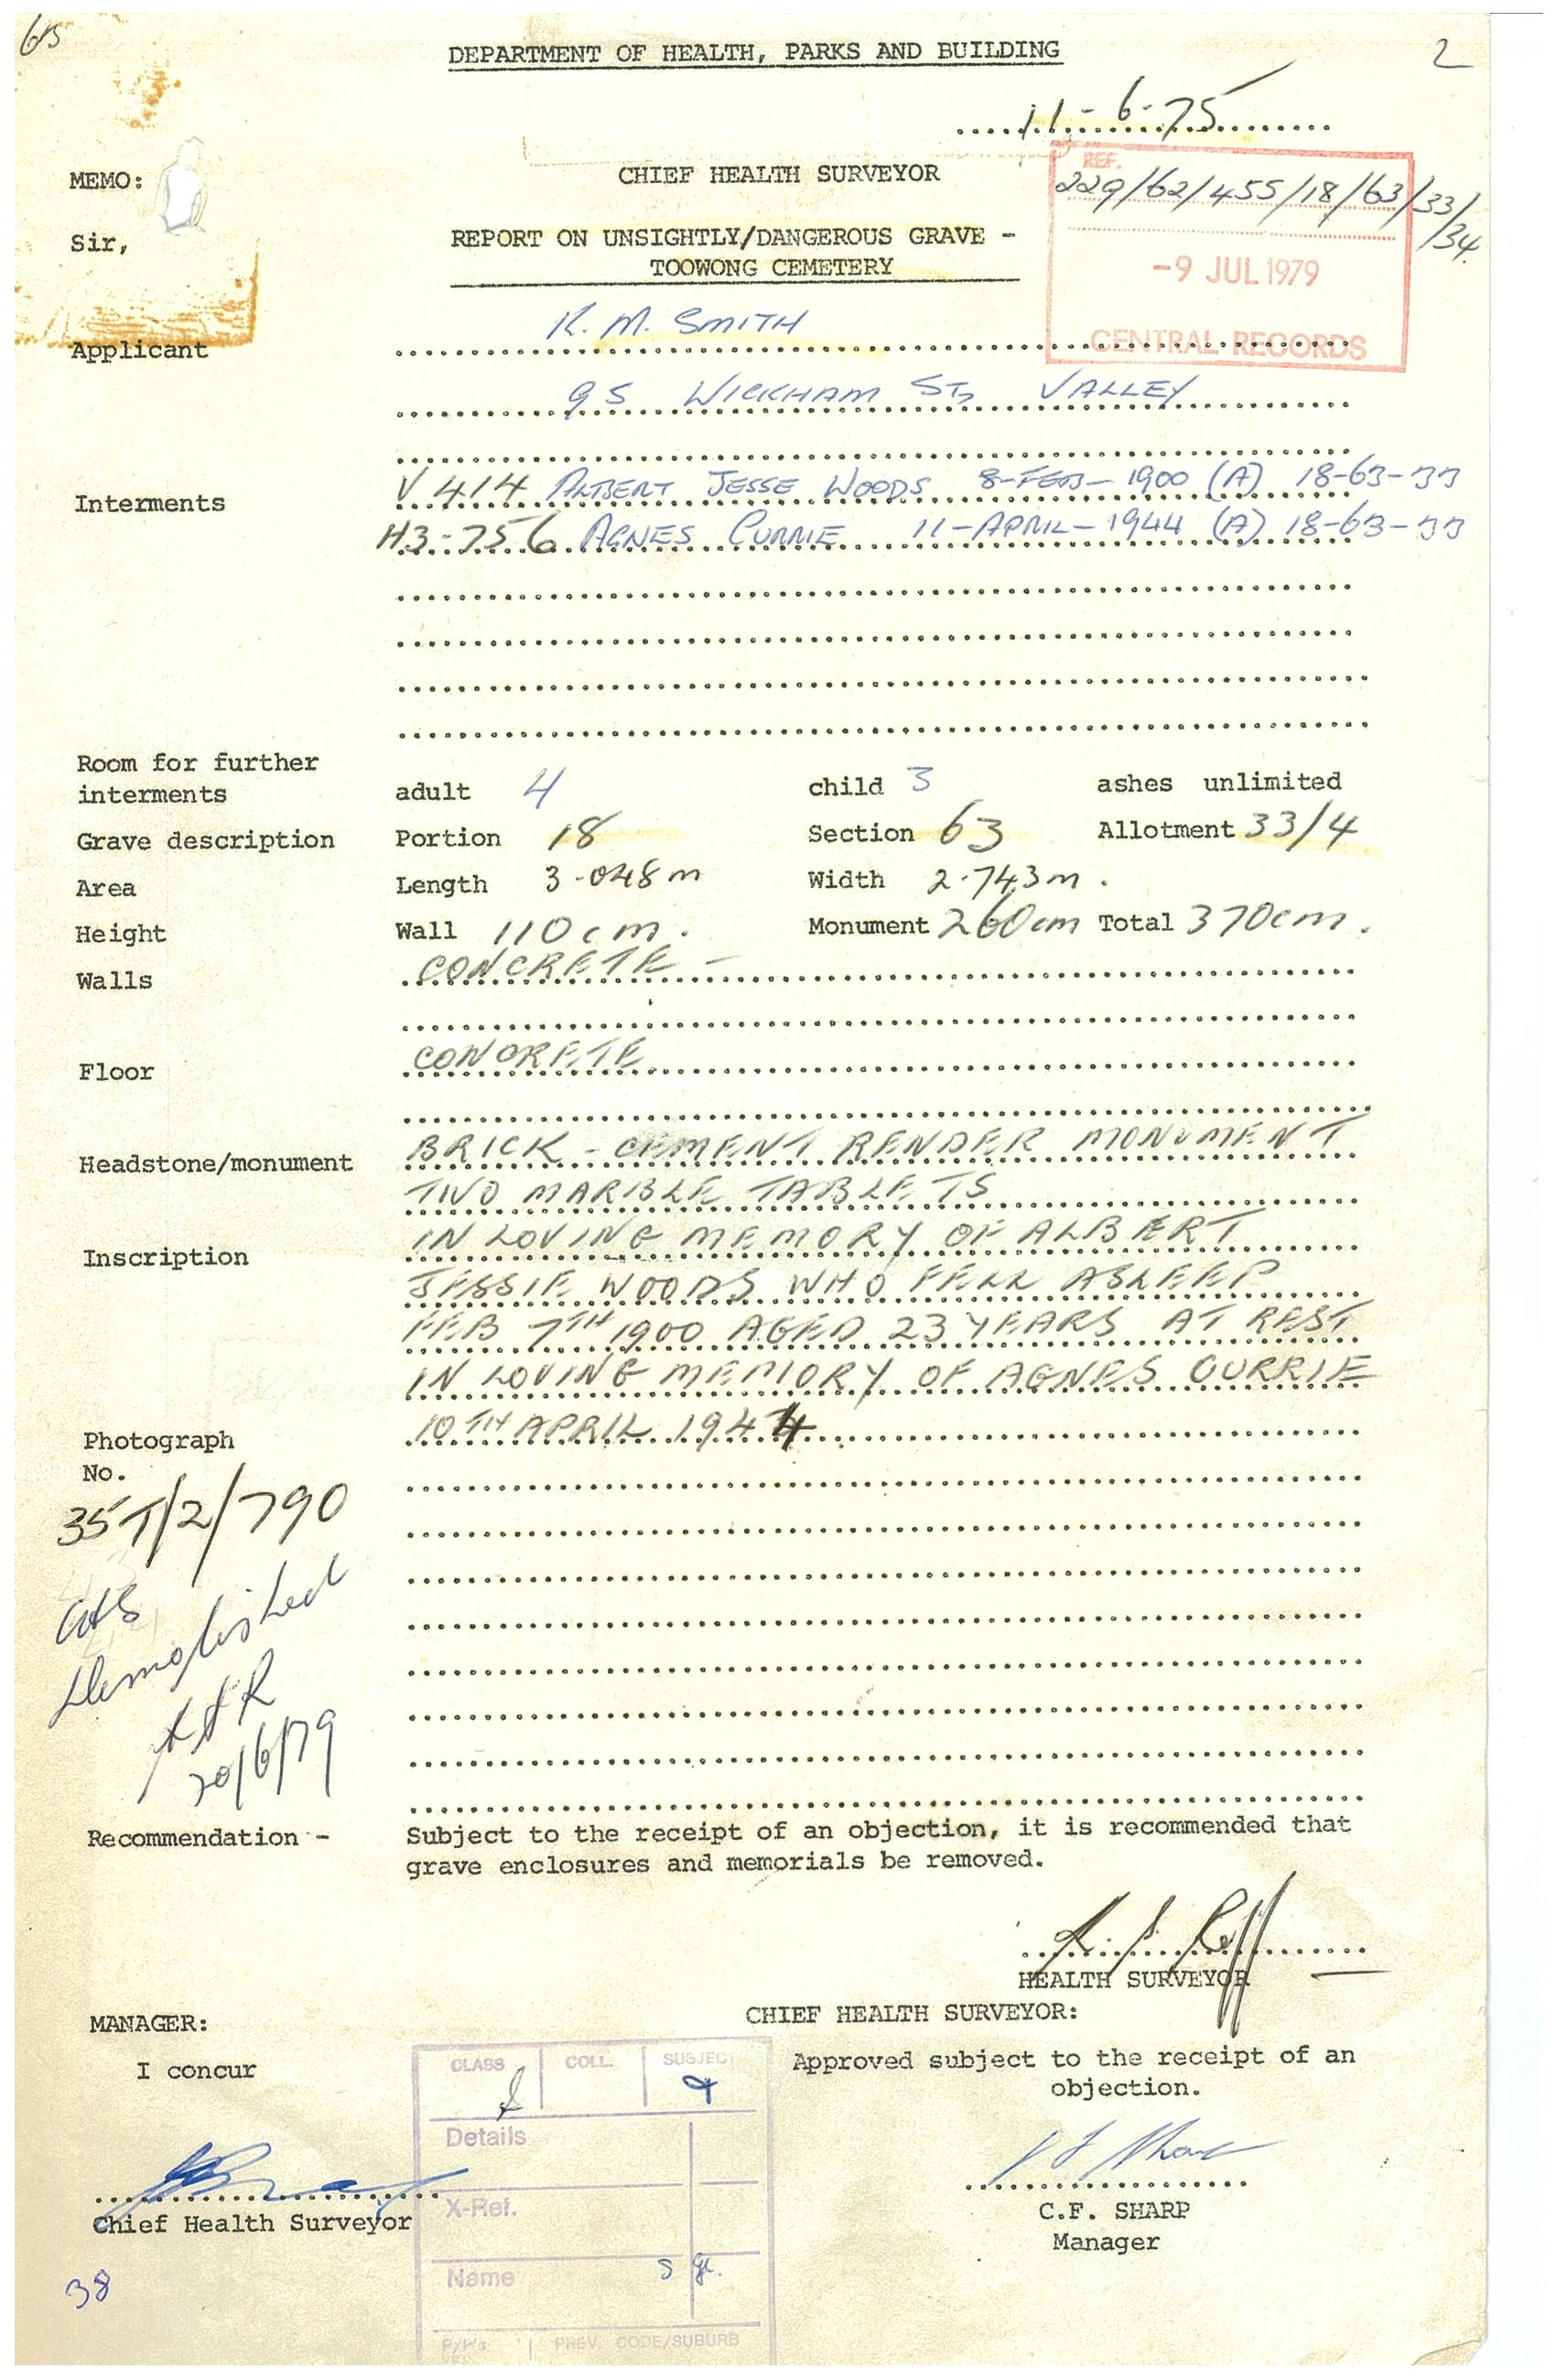 6/5
DEPARTMENT OF HEALTH, PARKS AND BUILDING
2
11-6-75
MEMO:
CHIEF HEALTH SURVEYOR
REF.
229/62/455/18/63/33/34
Sir,
REPORT ON UNSIGHTLY/DANGEROUS GRAVE -
TOOWONG CEMETERY
-9 JUL 1979
CENTRAL RECORDS
Applicant
K. M. SMITH
95 WICKHAM ST, VALLEY
Interments
V 414 ALBERT JESSE WOODS 8-FEB-1900 (A) 18-63-33
H3-756 AGNES CURRIE 11-APRIL-1944 (A) 18-63-33
Room for further
interments adult 4 child 3 ashes unlimited
Grave description Portion 18 Section 63 Allotment 33/4
Area Length 3.048m Width 2.743m.
Height Wall 110cm. Monument 260cm Total 370cm.
Walls CONCRETE -
Floor CONCRETE
Headstone/monument BRICK - CEMENT RENDER MONUMENT
TWO MARBLE TABLETS
Inscription IN LOVING MEMORY OF ALBERT
JESSIE WOODS WHO FELL ASLEEP
FEB 7TH 1900 AGED 23 YEARS AT REST
IN LOVING MEMORY OF AGNES CURRIE
10TH APRIL 1944
Photograph
No.
35T/2/790
Demolished
20/6/79
Recommendation - Subject to the receipt of an objection, it is recommended that
grave enclosures and memorials be removed.
HEALTH SURVEYOR
MANAGER:
CHIEF HEALTH SURVEYOR:
I concur
Approved subject to the receipt of an
objection.
CLASS COLL. SUBJECT
Details
X-Ref.
Name
P/P's PREV. CODE/SUBURB
Chief Health Surveyor
C.F. SHARP
Manager
38